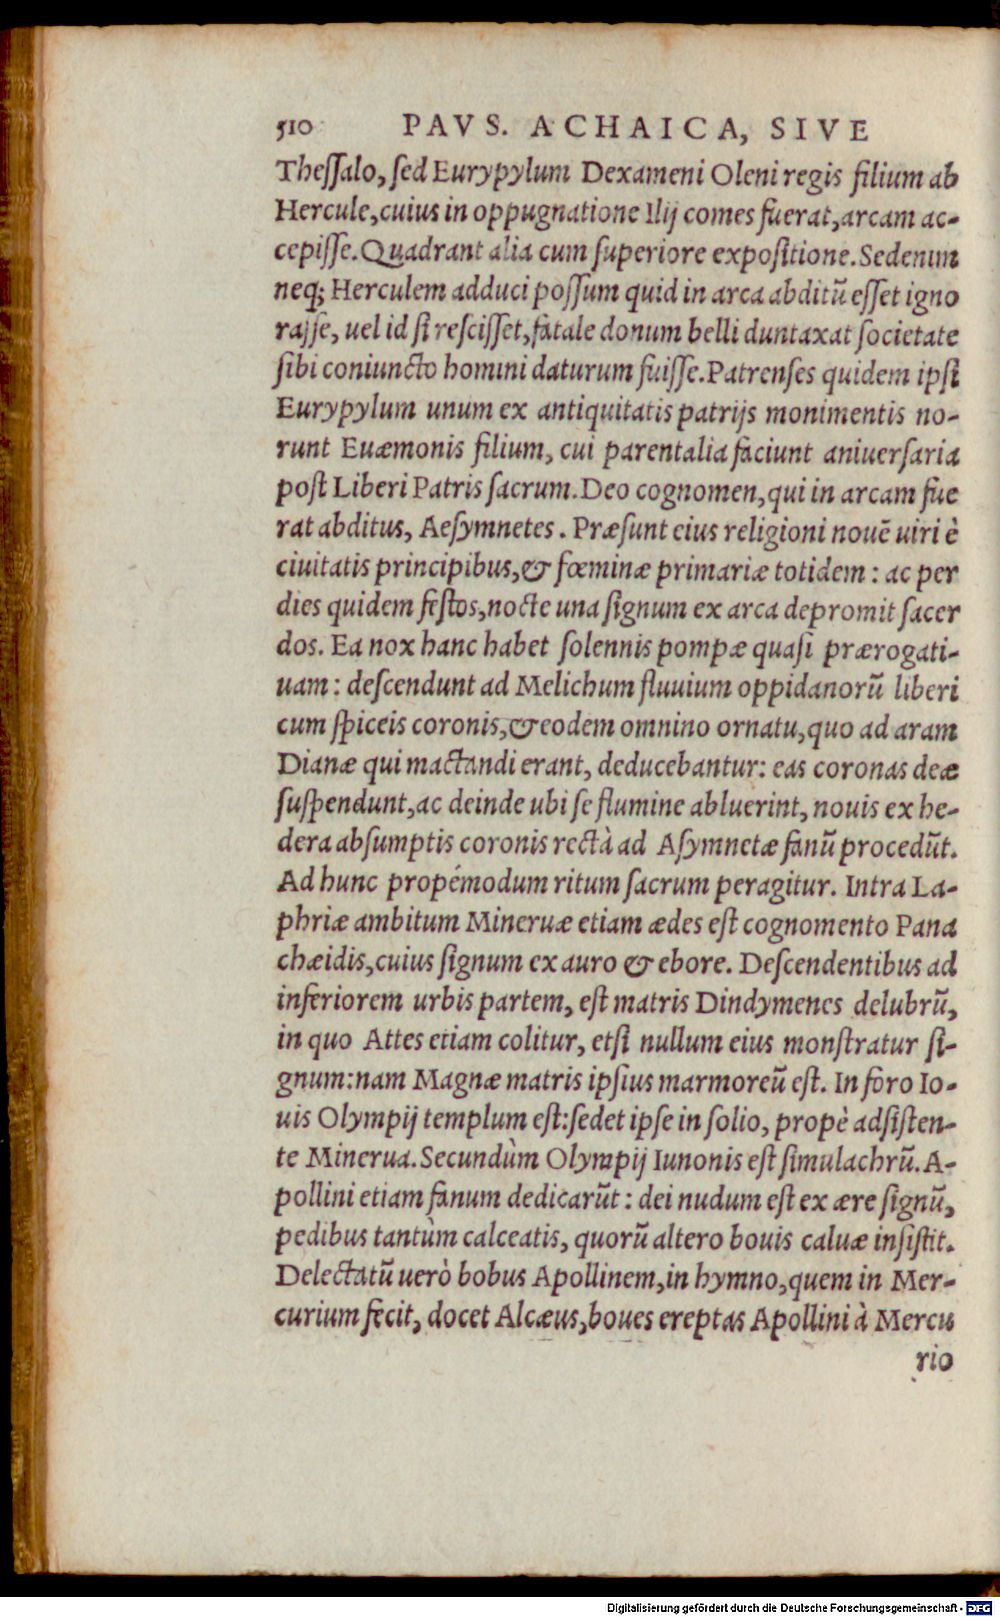 510 PAVS. ACHAICA, SIVE
Thessalo, sed Eurypylum Dexameni Oleni regis filium ab
Hercule, cuius in oppugnatione Ilij comes fuerat, arcam ac-
cepisse. Quadrant alia cum superiore expositione. Sed enim
neq; Herculem adduci possum quid in arca abditū esset igno
rasse, uel id si rescisset, fatale donum belli duntaxat societate
sibi coniuncto homini daturum fuisse. Patrenses quidem ipsi
Eurypylum unum ex antiquitatis patrijs monimentis no-
runt Euæmonis filium, cui parentalia faciunt aniuersaria
post Liberi Patris sacrum. Deo cognomen, qui in arcam fue
rat abditus, Aesymnetes. Præsunt eius religioni nouē uiri è
ciuitatis principibus, & fœminæ primariæ totidem: ac per
dies quidem festos, nocte una signum ex arca depromit sacer
dos. Ea nox hanc habet solennis pompæ quasi prærogati-
uam: descendunt ad Melichum fluuium oppidanorū liberi
cum spiceis coronis, & eodem omnino ornatu, quo ad aram
Dianæ qui mactandi erant, deducebantur: eas coronas deæ
suspendunt, ac deinde ubi se flumine abluerint, nouis ex he-
dera absumptis coronis rectà ad Asymnetæ fanū procedūt.
Ad hunc propémodum ritum sacrum peragitur. Intra La-
phriæ ambitum Mineruæ etiam ædes est cognomento Pana
chæidis, cuius signum ex auro & ebore. Descendentibus ad
inferiorem urbis partem, est matris Dindymenes delubrū,
in quo Attes etiam colitur, etsi nullum eius monstratur si-
gnum: nam Magnæ matris ipsius marmoreū est. In foro Io-
uis Olympij templum est: sedet ipse in solio, propè adsisten-
te Minerua. Secundùm Olympij Iunonis est simulachrū. A-
pollini etiam fanum dedicarūt: dei nudum est ex ære signū,
pedibus tantùm calceatis, quorū altero bouis caluæ insistit.
Delectatū uerò bobus Apollinem, in hymno, quem in Mer-
curium fecit, docet Alcæus, boues ereptas Apollini à Mercu
rio
Digitalisierung gefördert durch die Deutsche Forschungsgemeinschaft - DFG